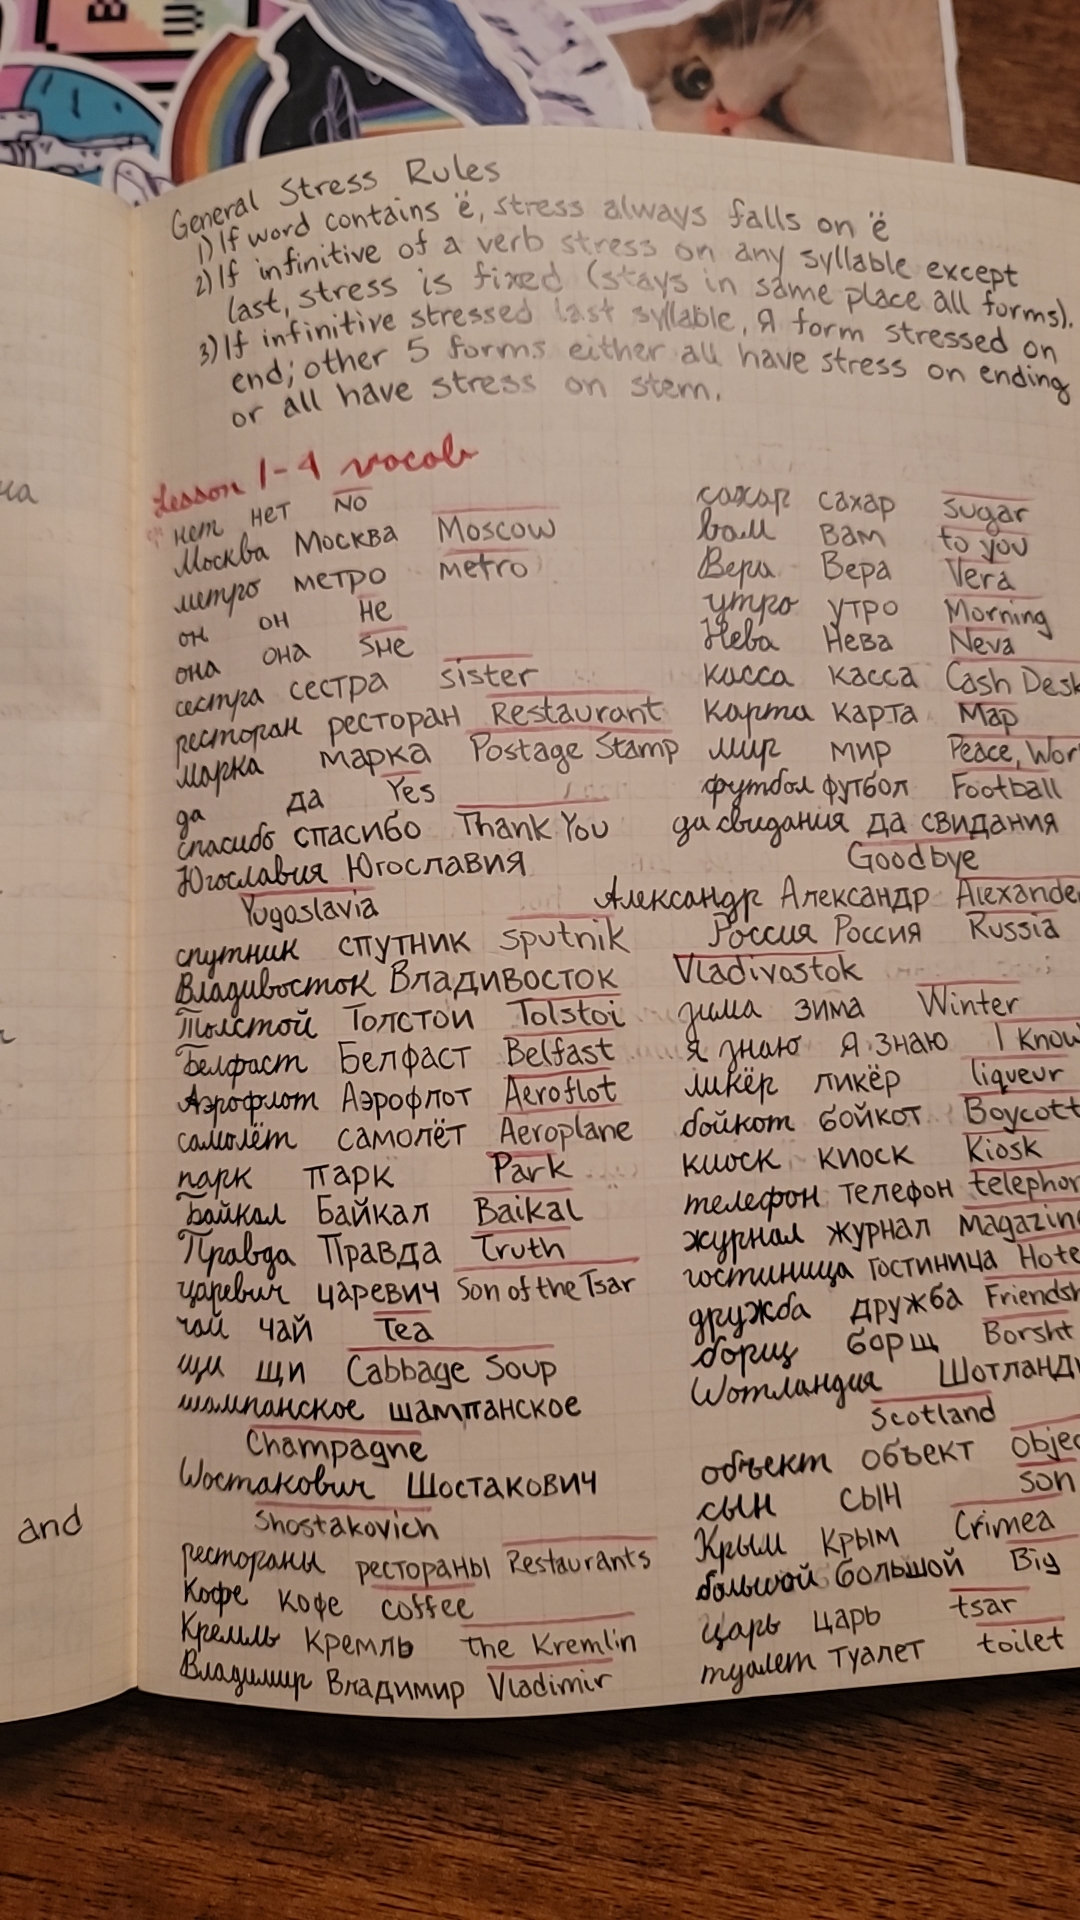 General Stress Rules
1) If word contains ё, stress always falls on ё
2) If infinitive of a verb stress on any syllable except
last, stress is fixed (stays in same place all forms).
3) If infinitive stressed last syllable, Я form stressed on
end; other 5 forms either all have stress on ending
or all have stress on stem.
Lesson 1-4 vocab
нет нет No
Москва Москва Moscow
метро метро metro
он он He
она она She
сестра сестра sister
ресторан ресторан Restaurant
марка марка Postage Stamp
да да Yes
спасибо спасибо Thank You
Югославия Югославия
Yugoslavia
спутник спутник sputnik
Владивосток Владивосток Vladivostok
Толстой Толстои Tolstoi
Белфаст Белфаст Belfast
Аэрофлот Аэрофлот Aeroflot
самолёт самолёт Aeroplane
парк парк Park
Байкал Байкал Baikal
Правда Правда Truth
царевич царевич Son of the Tsar
чай чай Tea
щи щи Cabbage Soup
шампанское шампанское
Champagne
Шостакович Шостакович
Shostakovich
рестораны рестораны Restaurants
Кофе кофе coffee
Кремль Кремль the Kremlin
Владимир Владимир Vladimir
сахар сахар sugar
вам вам to you
Вера Вера Vera
утро утро Morning
Нева Нева Neva
касса касса Cash Desk
карта карта Map
мир мир Peace,
футбол футбол Football
да свидания да свидания
Goodbye
Александр Александр Alexander
Россия Россия Russia
зима зима Winter
я знаю я знаю I Know
ликёр ликёр liqueur
бойкот бойкот Boycott
киоск киоск Kiosk
телефон телефон
журнал журнал Magazine
гостиница гостиница
дружба дружба
борщ борщ Borsht
Шотландия
Scotland
объект объект
сын сын son
Крым Крым Crimea
большой большой Big
царь царь tsar
туалет туалет toilet
and